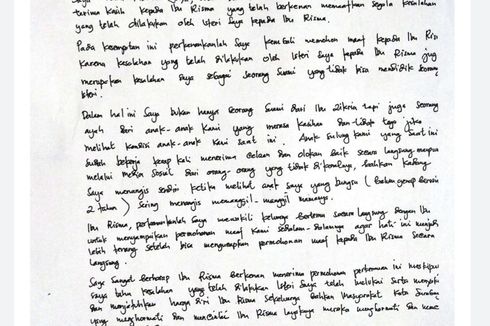 terima kasih kepada Ibu Risma yang telah berkenan memaafkan segala kesalahan
yang telah dilakukan oleh isteri saya kepada Ibu Risma.
Pada kesempatan ini perkenankanlah saya kembali memohon maaf kepada Ibu Ris
karena kesalahan yang telah dilakukan oleh isteri saya kepada Ibu Risma jug
merupakan kesalahan saya sebagai seorang suami yang tidak bisa mendidik seorang
isteri.
Dalam hal ini saya bukan hanya seorang suami dari Ibu Dikria tapi juga seorang
ayah dari anak-anak kami yang merasa kasihan dan tidak tega jika
melihat kondisi anak-anak kami saat ini. Anak sulung kami yang saat ini
sudah bekerja kerap kali menerima celaan dan olokan baik secara langsung maupun
melalui media sosial dari orang-orang yang tidak dikenalnya, bahkan kadang
saya menangis sendiri ketika melihat anak saya yang bungsu (bahkan genap berusia
2 tahun) sering menangis memanggil-manggil mamanya.
Ibu Risma, perkenankanlah saya mewakili keluarga bertemu secara langsung dengan Ibu
untuk menyampaikan permohonan maaf kami sedalam-dalamnya agar hati ini menjadi
lebih tenang setelah bisa mengucapkan permohonan maaf kepada Ibu Risma secara
langsung.
Saya sangat berharap Ibu Risma berkenan menerima permohonan pertemuan ini meskipun
saya tahu kesalahan yang telah dilakukan isteri saya telah melukai serta menyakiti
dan menjatuhkan harga diri Ibu Risma sekeluarga bahkan masyarakat Kota Surabaya
yang menghormati dan mencintai Ibu Risma layaknya mereka menghormati dan